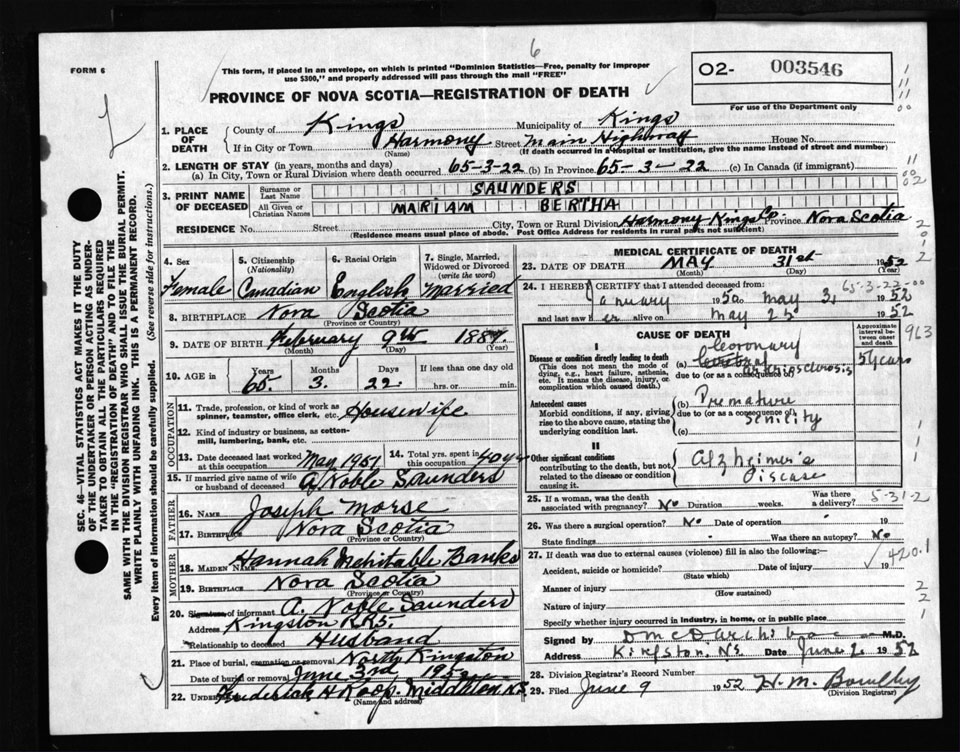 6
FORM 6
This form, if placed in an envelope, on which is printed "Dominion Statistics—Free, penalty for improper
use $300," and properly addressed will pass through the mail "FREE"
PROVINCE OF NOVA SCOTIA—REGISTRATION OF DEATH
O2- 003546
For use of the Department only
SEC. 46—VITAL STATISTICS ACT MAKES IT THE DUTY
OF THE UNDERTAKER OR PERSON ACTING AS UNDER-
TAKER TO OBTAIN ALL THE PARTICULARS REQUIRED
IN THE "REGISTRATION OF DEATH" AND TO FILE THE
SAME WITH THE DIVISION REGISTRAR WHO SHALL ISSUE THE BURIAL PERMIT.
WRITE PLAINLY WITH UNFADING INK. THIS IS A PERMANENT RECORD.
Every item of information should be carefully supplied. (See reverse side for instructions.)
1. PLACE OF DEATH
County of Kings Municipality of Kings
If in City or Town Harmony Street Main Highway House No.
(Name) (If death occurred in a Hospital or Institution, give the name instead of street and number)
2. LENGTH OF STAY (in years, months and days)
(a) In City, Town or Rural Division where death occurred 65-3-22 (b) In Province 65-3-22 (c) In Canada (if immigrant)
3. PRINT NAME OF DECEASED
Surname or Last Name SAUNDERS
All Given or Christian Names MARIAM BERTHA
RESIDENCE No. Street City, Town or Rural Division Harmony Kings Co Province Nova Scotia
(Residence means usual place of abode. Post Office Address for residents in rural parts not sufficient)
4. Sex Female
5. Citizenship (Nationality) Canadian
6. Racial Origin English
7. Single, Married, Widowed or Divorced (write the word) Married
8. BIRTHPLACE Nova Scotia
(Province or Country)
9. DATE OF BIRTH February 9th 1887
(Month) (Day) (Year)
10. AGE in Years 65 Months 3. Days 22. If less than one day old
hrs. or min.
11. Trade, profession, or kind of work as
spinner, teamster, office clerk, etc. Housewife
12. Kind of industry or business, as cotton-
mill, lumbering, bank, etc.
OCCUPATION
13. Date deceased last worked at this occupation May 1951
14. Total yrs. spent in this occupation 40 yrs
15. If married give name of wife
or husband of deceased A. Noble Saunders
FATHER
16. Name Joseph Morse
17. Birthplace Nova Scotia
(Province or Country)
MOTHER
18. MAIDEN NAME Hannah Mehitable Banks
19. BIRTHPLACE Nova Scotia
(Province or Country)
20. Signature of informant A. Noble Saunders
Address Kingston RR5.
Relationship to deceased Husband
21. Place of burial, cremation or removal North Kingston
Date of burial or removal June 3rd 1952
22. Frederick H Roop. Middleton N.S.
(Name and address)
MEDICAL CERTIFICATE OF DEATH
23. DATE OF DEATH MAY 31st 1952
(Month) (Day) (Year)
65-3-22-00
24. I HEREBY CERTIFY that I attended deceased from:
January 1950 to May 31 1952
and last saw her alive on May 25 1952
CAUSE OF DEATH
Approximate interval between onset and death
963
I
Disease or condition directly leading to death
(This does not mean the mode of
dying, e.g., heart failure, asthenia,
etc. It means the disease, injury, or
complication which caused death.)
(a) Coronary
arteriosclerosis 5 years
due to (or as a consequence of)
Antecedent causes
Morbid conditions, if any, giving
rise to the above cause, stating the
underlying condition last.
(b) Premature
due to (or as a consequence of)
Senility
(c)
II
Other significant conditions
contributing to the death, but not
related to the disease or condition
causing it.
Alzheimer's
Disease
25. If a woman, was the death
associated with pregnancy? No Duration weeks. Was there a delivery?
5-31-2
26. Was there a surgical operation? No Date of operation
State findings Was there an autopsy? No
27. If death was due to external causes (violence) fill in also the following: 420.1
Accident, suicide or homicide? Date of injury 19
(State which)
Manner of injury
(How sustained)
Nature of injury
Specify whether injury occurred in industry, in home, or in public place
Signed by M.D.
Address Kingston, NS. Date June 2 1952
28. Division Registrar's Record Number
29. Filed June 9 1952 H. M.
(Division Registrar)